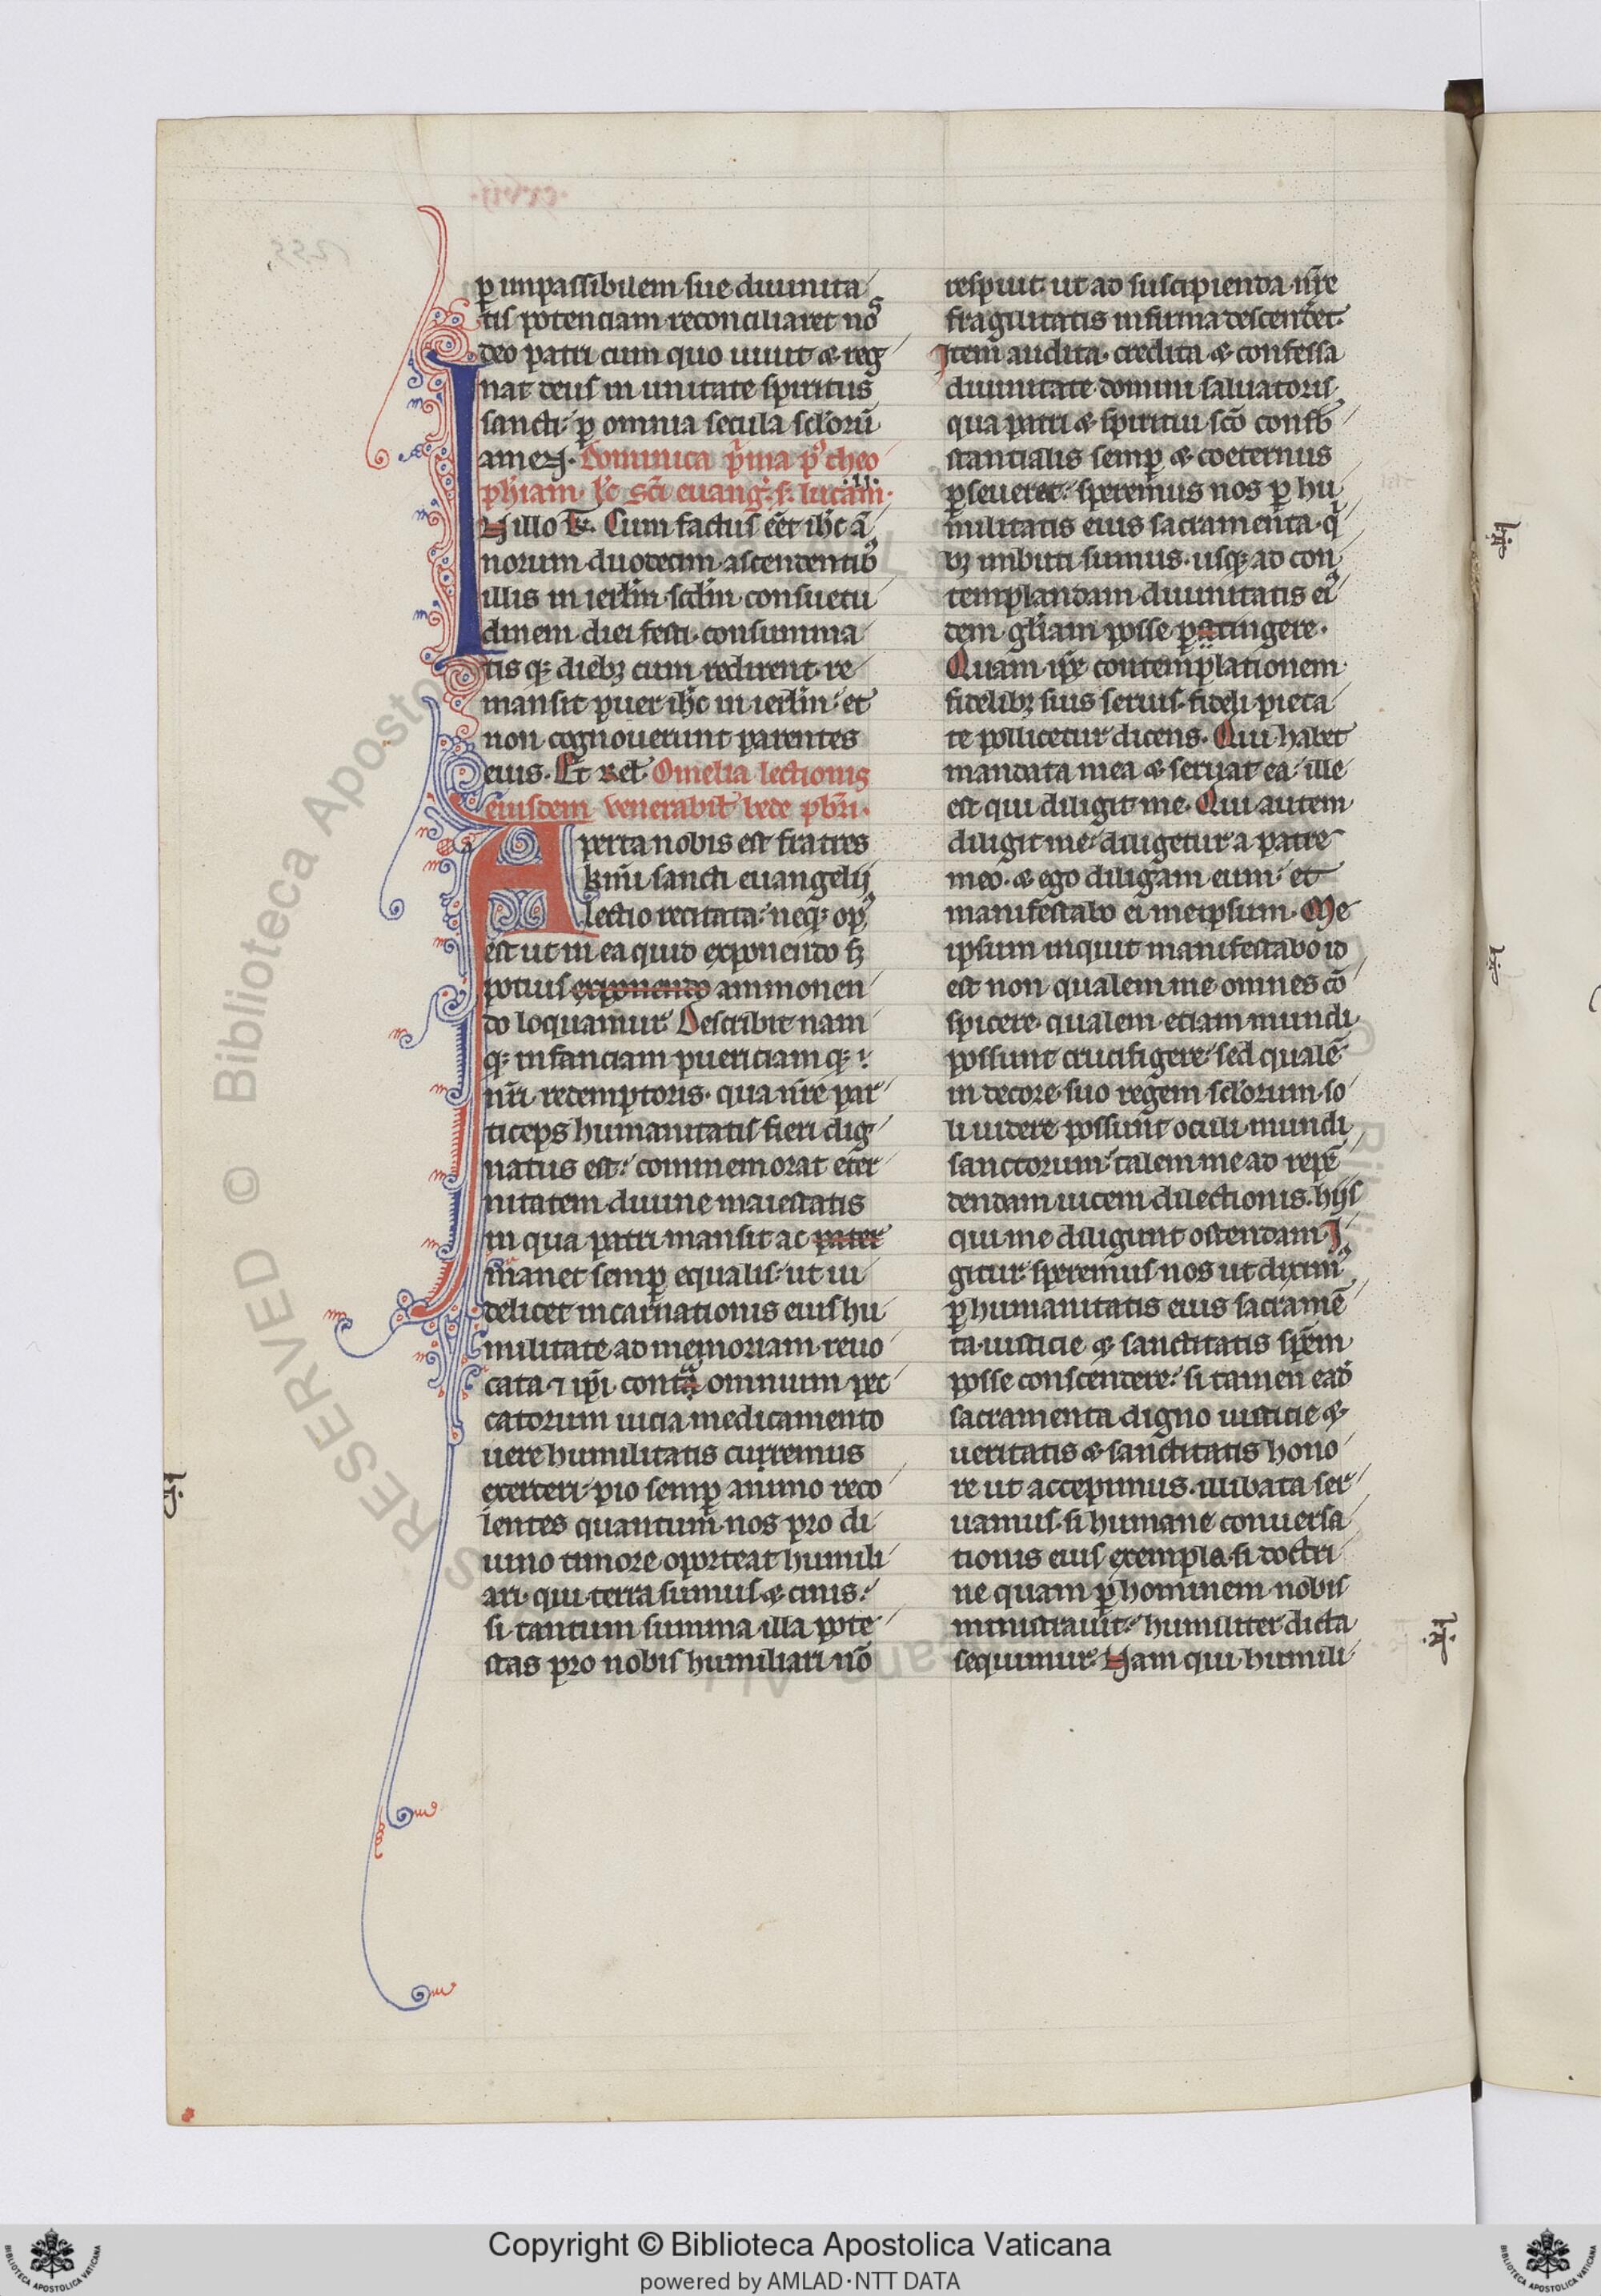 ꝑ impassibilem sue diuinita
tis potenciam reconciliaret noˢ
deo patri cum quo uiuit ⁊ reg
nat deus in unitate spiritus
sancti ꝑ omnia secula sc̄lorū
amen. Dominica p̄ma pꝰ theo
phīam. sc̄i euanḡ. s. lucam.
N illo t̄. Cum factus eēt ih̄c ā
norum duodecim ascendentibꝰ
illis in ierlm̄ scdm̄ consuetu
dinem diei festi consumma
tis qꝫ diebꝫ cum redirent re
mansit puer ih̄c in ierlm̄ et
non cognouerunt parentes
eius. Et rel̄. Omelia lectionis
eiusdem venerabil̄ bede pbr̄i.
Aperta nobis est fratres
kmī sancti euangelij
lectio recitata neqꝫ opꝰ
est ut in ea quid exponendo sꝫ
potius exponendo ammonen
do loquamur. Describit nam
qꝫ infanciam puericiam qꝫ
nr̄i redemptoris. qua nr̄e par
ticeps humanitatis fieri dig
natus est. commemorat eter
nitatem diuine maiestatis
in qua patri mansit ac pater
manet semꝑ equalis ut ui
delicet incarnationis eius hu
militate ad memoriam reuo
cata ⁊ ip̄i contᵃ omnium pec
catorum uicia medicamento
uere humilitatis curremus
exerceri pio semꝑ animo reco
lentes quantum nos pro di
uino timore oporteat humili
ari. qui terra sumus ⁊ cinis.
si tantum summa illa pote
stas pro nobis humiliari nō
respuit ut ad suscipienda nr̄e
fragilitatis infirma descenderet.
Item audita. credita ⁊ confessa
diuinitate domini saluatoris
qua patri ⁊ spiritui sc̄o consb̄
stancialis semꝑ ⁊ coeternus
ꝑseueret. speremus nos ꝑ hu
militatis eius sacramenta. qͥ
bꝫ imbuti sumus. usqꝫ ad con
templandam diuinitatis eiꝰ
dem gl̄iam posse ꝑtingere.
Quam ip̄e contemplationem
fidelibꝫ suis seruis. fideli pieta
te pollicetur dicens. Qui habet
mandata mea ⁊ seruat ea. ille
est qui diligit me. Qui autem
diligit me. diligetur a patre
meo. ⁊ ego diligam eum. et
manifestabo ei meipsum. Me
ipsum inquit manifestabo id
est non qualem me omnes cō
spicere. qualem eciam mundi
possunt crucifigere. sed qualē
in decore suo regem sc̄lorum so
li uidere possunt oculi mundi
sanctorum. talem me ad repē
dendam uicem dilectionis. hijs
qui me diligunt ostendam. I
gitur speremus nos ut diximꝰ
ꝑ humanitatis eius sacramē
ta. iusticie ⁊ sanctitatis spem
posse conscendere. si tamen eadē
sacramenta digno iusticie ⁊
ueritatis ⁊ sanctitatis hono
re ut accepimus. illibata ser
uamus. si humane conuersa
tionis eius exempla. si doctri
ne quam ꝑ hominem nobis
ministrauit. humiliter dicta
sequimur. Nam qui humili
Copyright © Biblioteca Apostolica Vaticana
powered by AMLAD·NTT DATA